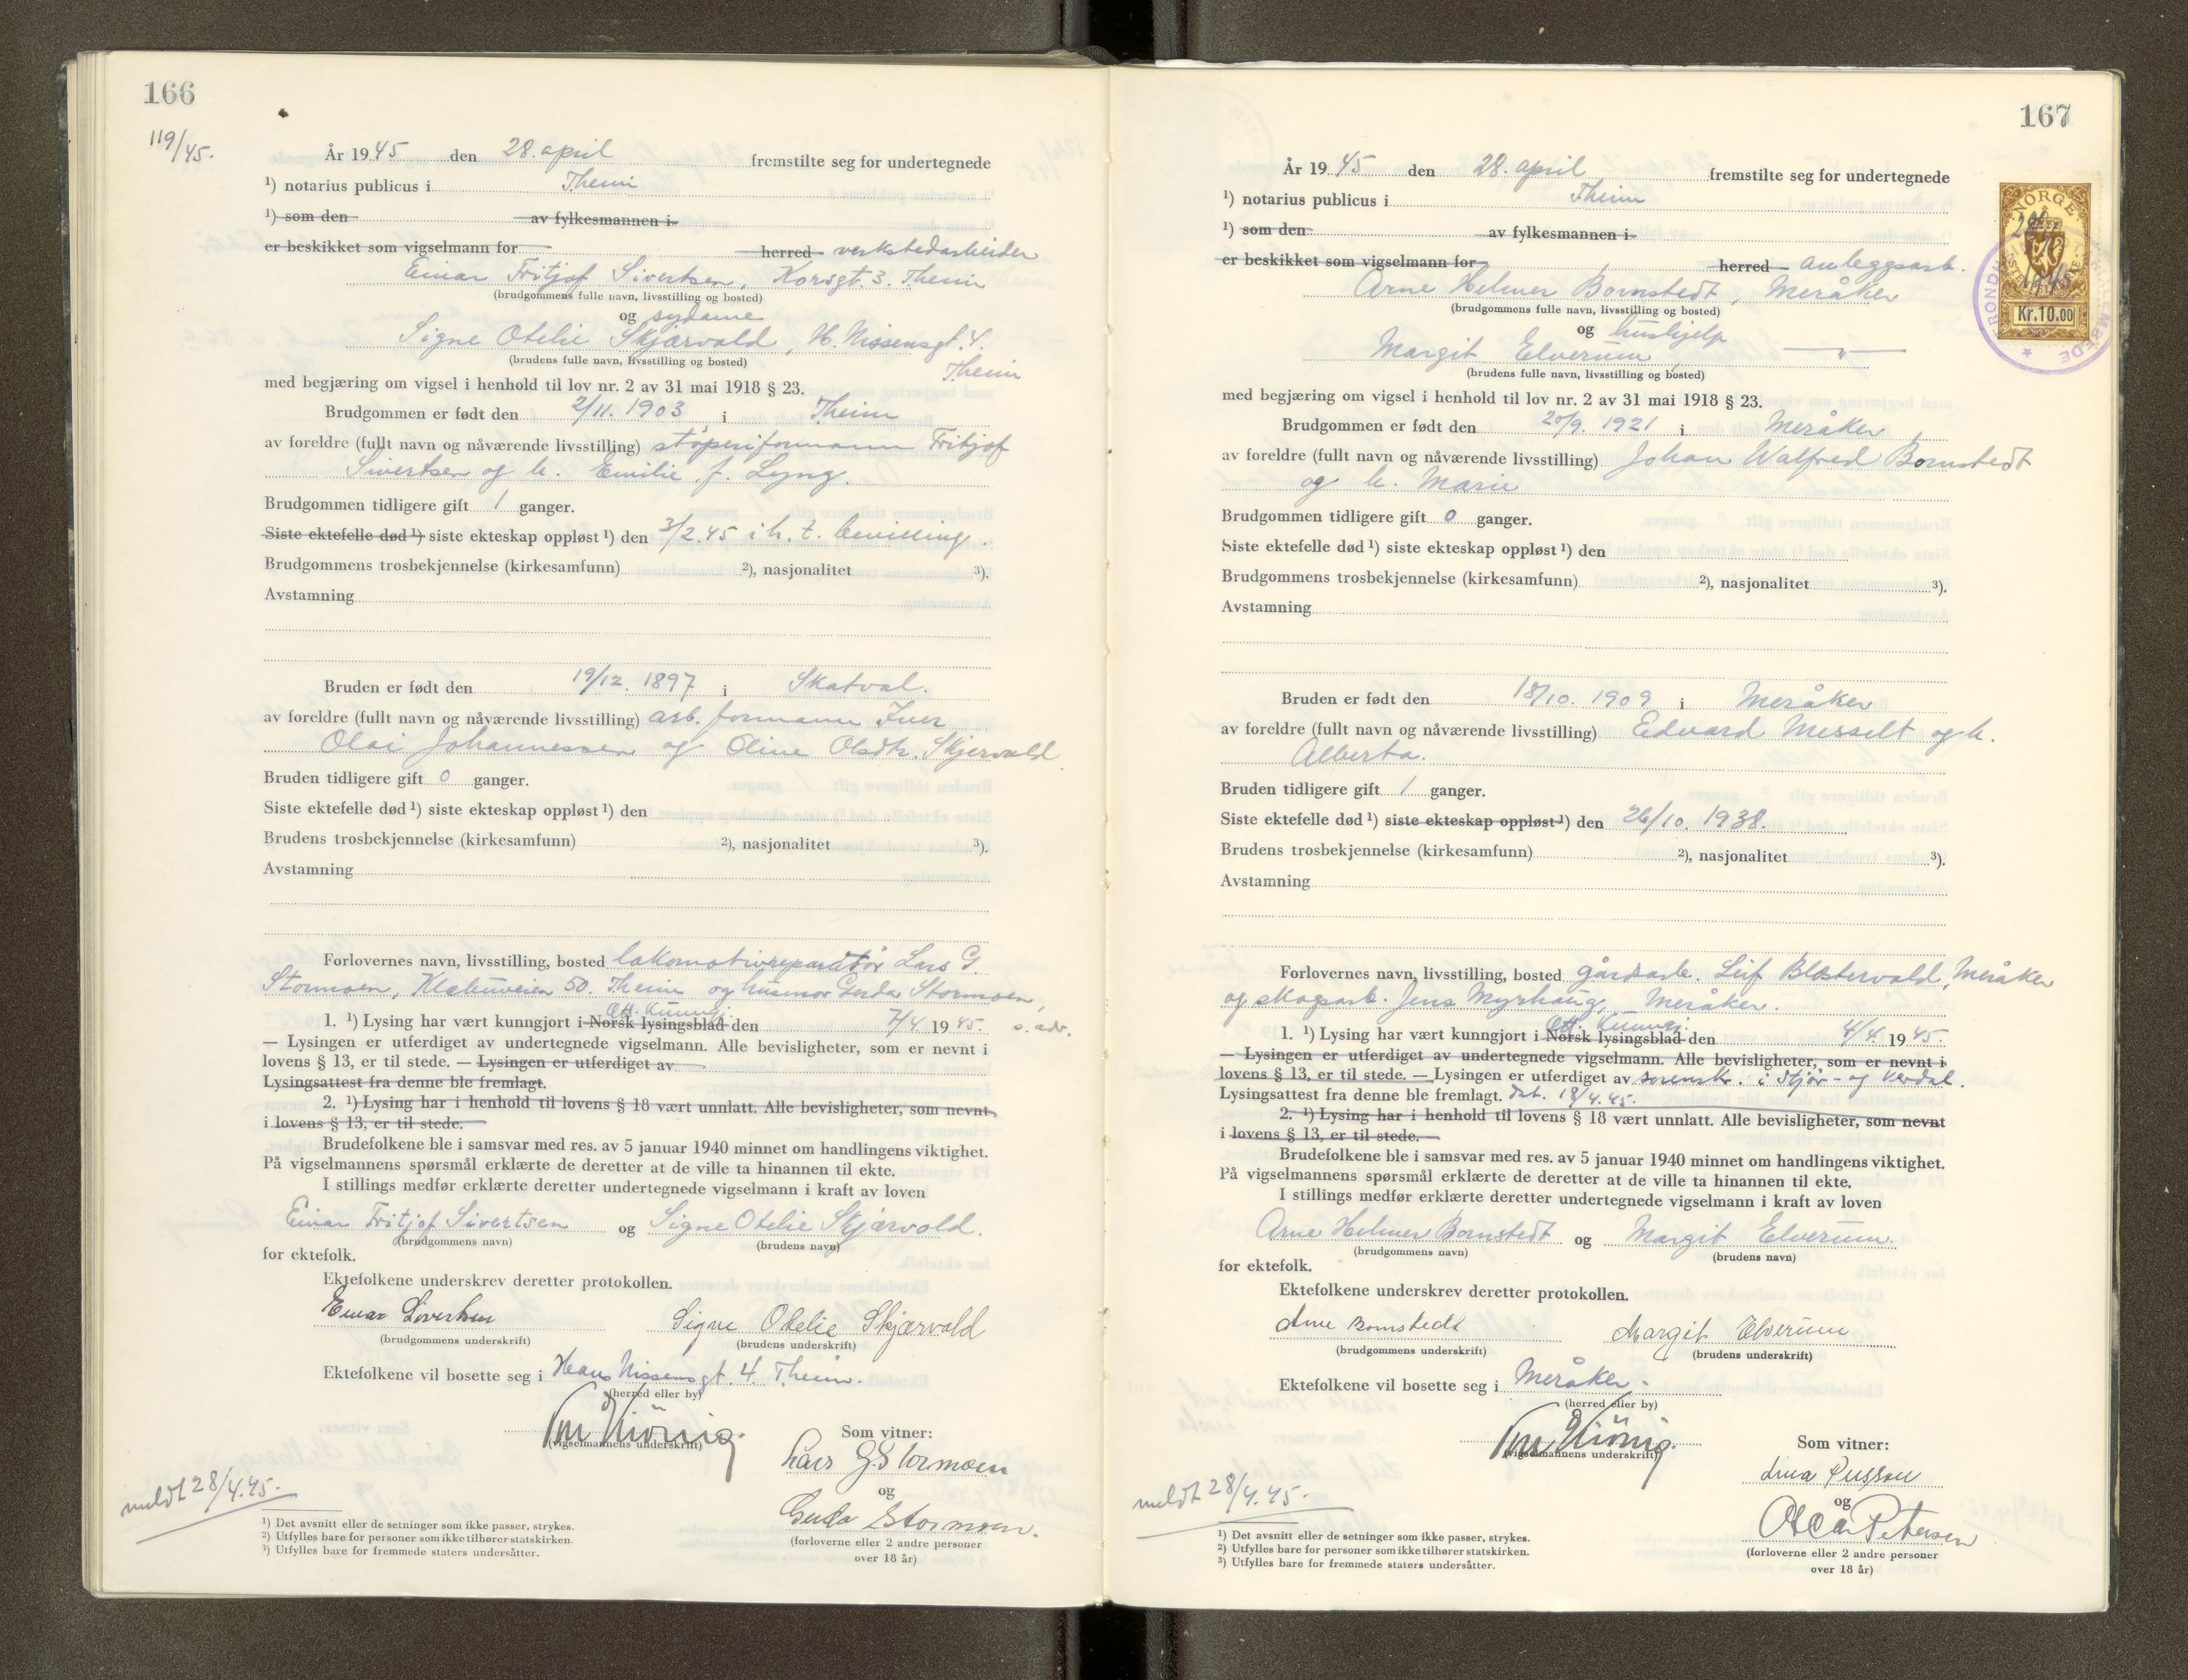 166
119/45.
År 1945 den 28. april fremstilte seg for undertegnede
¹) notarius publicus i Th.eim
¹) som den av fylkesmannen i
er beskikket som vigselmann for herred verkstedarbeider
Einar Fritjof Sivertsen, Korsgt. 3. Th.eim
(brudgommens fulle navn, livsstilling og bosted)
og sydame
Signe Otelie Skjærvold, H. Nissensgt. 4.
(brudens fulle navn, livsstilling og bosted) Th.eim
med begjæring om vigsel i henhold til lov nr. 2 av 31 mai 1918 § 23.
Brudgommen er født den 2/11. 1903 i Th.eim
av foreldre (fullt navn og nåværende livsstilling) støperiformann Fritjof
Sivertsen og h. Emilie f. Lyng.
Brudgommen tidligere gift 1 ganger.
Siste ektefelle død ¹) siste ekteskap oppløst ¹) den 3/2.45 i h. t. bevilling.
Brudgommens trosbekjennelse (kirkesamfunn) ²), nasjonalitet ³).
Avstamning
Bruden er født den 19/12. 1897 i Skatval.
av foreldre (fullt navn og nåværende livsstilling) arb. formann Iver
Olai Johannessen og Oline Olsdtr. Skjervold
Bruden tidligere gift 0 ganger.
Siste ektefelle død ¹) siste ekteskap oppløst ¹) den
Brudens trosbekjennelse (kirkesamfunn) ²), nasjonalitet ³).
Avstamning
Forlovernes navn, livsstilling, bosted lokomotivreparatør Lars G.
Stormoen, Klæbuveien 50. Th.eim og husmor Gerda Stormoen,
Off. Kunngj.
1. ¹) Lysing har vært kunngjort i Norsk lysingsblad den 7/4 1945. s. adr.
— Lysingen er utferdiget av undertegnede vigselmann. Alle bevisligheter, som er nevnt i
lovens § 13, er til stede. — Lysingen er utferdiget av
Lysingsattest fra denne ble fremlagt.
2. ¹) Lysing har i henhold til lovens § 18 vært unnlatt. Alle bevisligheter, som nevnt
i lovens § 13, er til stede.
Brudefolkene ble i samsvar med res. av 5 januar 1940 minnet om handlingens viktighet.
På vigselmannens spørsmål erklærte de deretter at de ville ta hinannen til ekte.
I stillings medfør erklærte deretter undertegnede vigselmann i kraft av loven
Einar Fritjof Sivertsen og Signe Otelie Skjærvold.
(brudgommens navn) (brudens navn)
for ektefolk.
Ektefolkene underskrev deretter protokollen.
Einar Sivertsen Signe Otelie Skjærvold
(brudgommens underskrift) (brudens underskrift)
Ektefolkene vil bosette seg i Hans Nissensgt. 4. Th.eim.
(herred eller by)
(vigselmannens underskrift)
Som vitner:
Lars G Stormoen
og
Gerda Stormoen.
(forloverne eller 2 andre personer
over 18 år)
meldt 28/4.45.
¹) Det avsnitt eller de setninger som ikke passer, strykes.
²) Utfylles bare for personer som ikke tilhører statskirken.
³) Utfylles bare for fremmede staters undersåtter.
167
NORGE
28/4
1945
Kr.10.00
År 1945 den 28. april fremstilte seg for undertegnede
¹) notarius publicus i Th.eim
¹) som den av fylkesmannen i
er beskikket som vigselmann for herred anleggsarb.
Arne Helmer Bornstedt, Meråker
(brudgommens fulle navn, livsstilling og bosted)
og hushjelp
Margit Elverum — " —
(brudens fulle navn, livsstilling og bosted)
med begjæring om vigsel i henhold til lov nr. 2 av 31 mai 1918 § 23.
Brudgommen er født den 20/9. 1921 i Meråker
av foreldre (fullt navn og nåværende livsstilling) Johan Walfred Bornstedt
og h. Marie
Brudgommen tidligere gift 0 ganger.
Siste ektefelle død ¹) siste ekteskap oppløst ¹) den
Brudgommens trosbekjennelse (kirkesamfunn) ²), nasjonalitet ³).
Avstamning
Bruden er født den 18/10. 1909 i Meråker
av foreldre (fullt navn og nåværende livsstilling) Edvard Messelt og h.
Alberta.
Bruden tidligere gift 1 ganger.
Siste ektefelle død ¹) siste ekteskap oppløst ¹) den 26/10. 1938.
Brudens trosbekjennelse (kirkesamfunn) ²), nasjonalitet ³).
Avstamning
Forlovernes navn, livsstilling, bosted gårdarb. Leif Blåstervold, Meråker
og skogsarb. Jens Myrhaug, Meråker.
Off. Kunngj.
1. ¹) Lysing har vært kunngjort i Norsk lysingsblad den 4/4. 1945.
— Lysingen er utferdiget av undertegnede vigselmann. Alle bevisligheter, som er nevnt i
lovens § 13, er til stede. — Lysingen er utferdiget av sorensk. i Stjør- og Verdal.
Lysingsattest fra denne ble fremlagt. dat. 18/4.45.
2. ¹) Lysing har i henhold til lovens § 18 vært unnlatt. Alle bevisligheter, som nevnt
i lovens § 13, er til stede.
Brudefolkene ble i samsvar med res. av 5 januar 1940 minnet om handlingens viktighet.
På vigselmannens spørsmål erklærte de deretter at de ville ta hinannen til ekte.
I stillings medfør erklærte deretter undertegnede vigselmann i kraft av loven
Arne Helmer Bornstedt og Margit Elverum.
(brudgommens navn) (brudens navn)
for ektefolk.
Ektefolkene underskrev deretter protokollen.
Arne Bornstedt Margit Elverum
(brudgommens underskrift) (brudens underskrift)
Ektefolkene vil bosette seg i Meråker.
(herred eller by)
(vigselmannens underskrift)
Som vitner:
og
Petersen
(forloverne eller 2 andre personer
over 18 år)
meldt 28/4.45.
¹) Det avsnitt eller de setninger som ikke passer, strykes.
²) Utfylles bare for personer som ikke tilhører statskirken.
³) Utfylles bare for fremmede staters undersåtter.